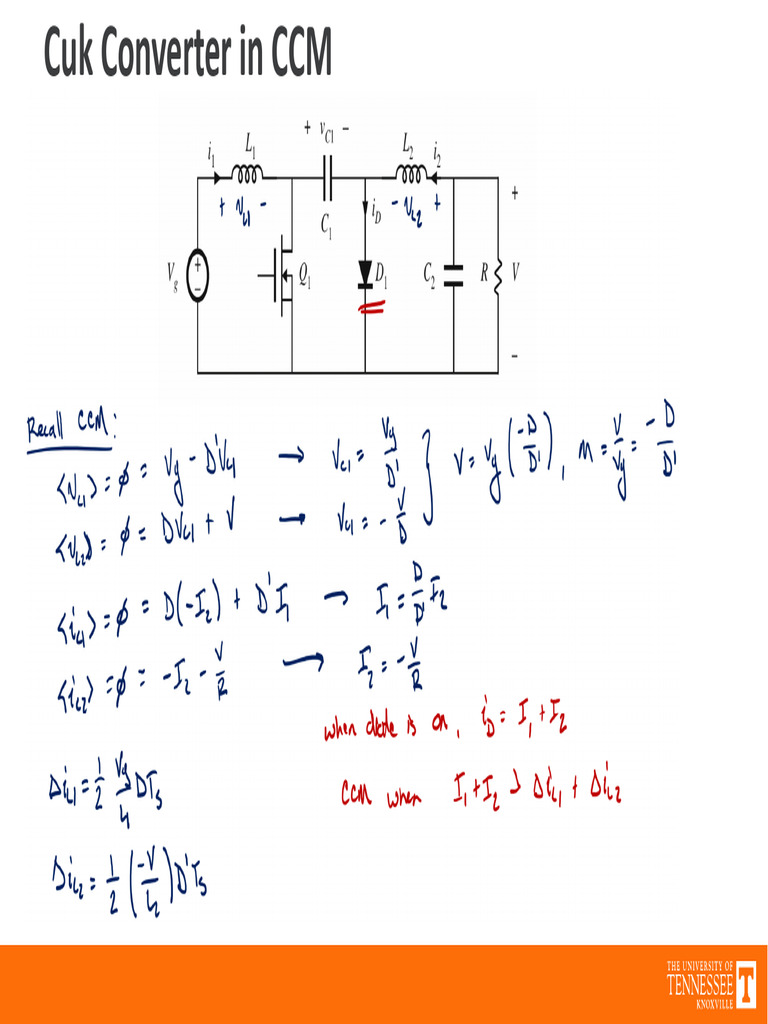 Cuk Converter in CCM
+ v_C1 −
i_1 L_1 L_2 i_2
+ v_L1 − C_1 i_D − v_L2 + +
V_g + − Q_1 D_1 C_2 R V
−
Recall CCM:
⟨v_L1⟩ = ϕ = Vg − D'V_C1 → V_C1 = Vg/D' } V = Vg(−D/D'), M = V/Vg = −D/D'
⟨v_L2⟩ = ϕ = DV_C1 + V → V_C1 = −V/D
⟨i_C1⟩ = ϕ = D(−I_2) + D'I_1 → I_1 = D/D' I_2
⟨i_C2⟩ = ϕ = −I_2 − V/R → I_2 = −V/R
when diode is on, i_D = I_1 + I_2
Δi_L1 = 1/2 Vg/L_1 DT_s
CCM when I_1 + I_2 > Δi_L1 + Δi_L2
Δi_L2 = 1/2 (−V/L_2) D'T_s
THE UNIVERSITY OF
TENNESSEE
KNOXVILLE
T